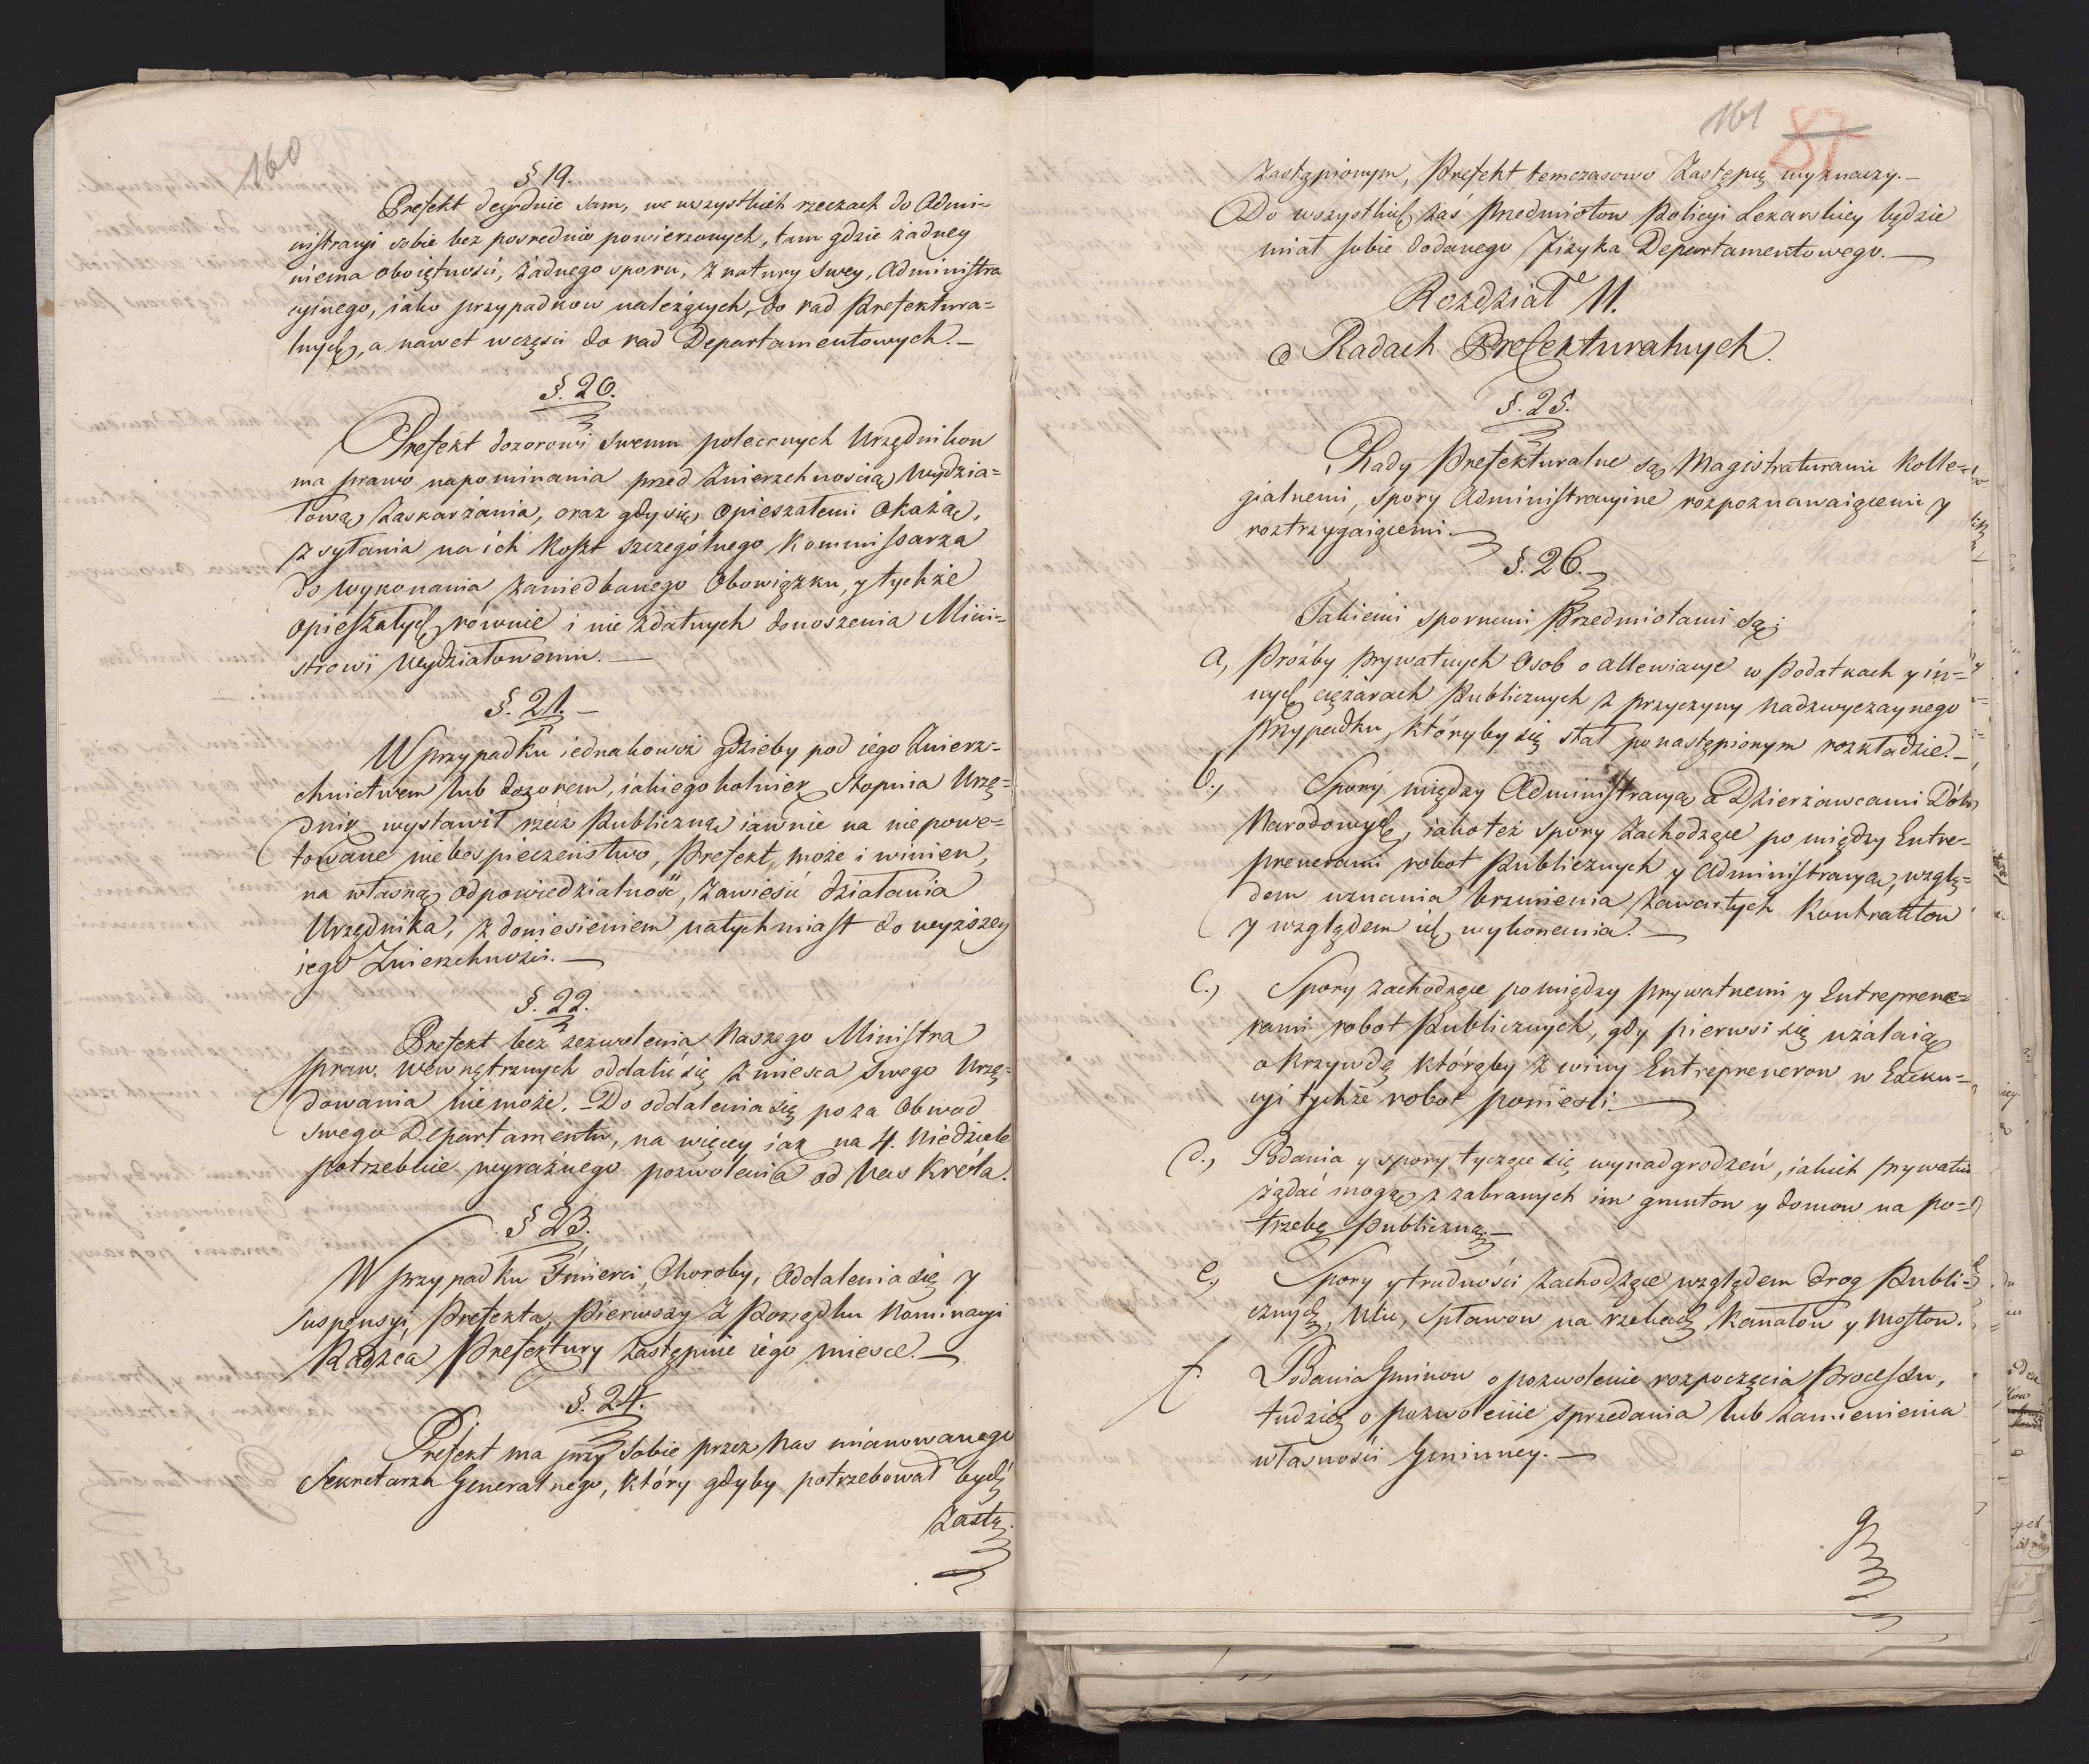 160
§ 19.
Prefekt decyduie sam, we wszystkich rzeczach do Admi-
nistracyi sobie bezposrednio powierzonych, tam gdzie zadney
niema oboiętności, żadnego sporu, z natury swey, Administra
cyinego, iako przypadkow należących, do rad Prefektura=
lnych, a nawet wczęsci do rad Departamentowych. —
§. 20.
Prefekt dozorowi swemu poleconych Urzędnikow
ma prawo napominania przed Zwierzchnością Wydzia=
łową zaskarżania, oraz gdy się opieszałemi okażą,
zsyłania na ich koszt szczególnego Kommissarza
do wykonania zaniedbanego Obowiązku, y tychże
opieszałych, równie i nie zdatnych donoszenia Mini=
strowi Wydziałowemu. —
§. 21. —
W przypadku iednakowoż gdzieby pod iego Zwierz=
chnictwem lub dozorem, iakiegokolwiek stopnia Urzę=
dnik wystawił rzecz Publiczną iawnie na niepowe=
towane niebespieczeństwo, Prefekt może i winien,
na własną odpowiedzialność, zawiesić działania
Urzędnika, z doniesieniem natychmiast do wyższey
iego Zwierzchności. —
§. 22.
Prefekt bez zezwolenia Naszego Ministra
spraw wewnętrznych oddalić się z mieysca swego Urzę=
dowania niemoże. — Do oddalenia się poza Obwod
swego Departamentu, na więcey iak na 4. Niedziele
potrzebuie wyraźnego pozwolenia od Nas Króla.
§ 23.
W przypadku Śmierci, Choroby, Oddalenia się y
suspensyi, Prefekta, Pierwszy z Porządku Nominacyi
Radzca Prefektury zastępuie iego miesce. —
§. 24.
Prefekt ma przy sobie przez Nas mianowanego
Sekretarza Generalnego, który gdyby potrzebował bydź
Zastą
161 87
zastąpionym, Prefekt temczasowo Zastępcę wyznaczy. —
Do wszystkich zaś Przedmiotow Policyi Lekarskiey będzie
miał sobie dodanego Fizyka Departamentowego. —
Rozdział II.
o Radach Prefekturalnych.
§. 25.
Rady Prefekturalne są Magistraturami Kolle=
gialnemi, spory Administracyine rozpoznawaiącemi y
roztrzygaiącemi. —
§. 26. —
Takiemi spornemi Przedmiotami są:
a, Prożby prywatnych Osob o allewiacye w Podatkach y in=
nych ciężarach Publicznych z przyczyny nadzwyczaynego
przypadku, któryby się stał po nastąpionym rozkładzie. —
b., Spory między Administracyą a Dzierżawcami Dóbr
Narodowych, iako też spory zachodzące pomiędzy Entre=
prenerami robot Publicznych y Administracyą, wzglę=
dem uznania brzmienia zawartych Kontraktow
y względem ich wykonania. —
C., Spory zachodzące pomiędzy prywatnemi y Entreprene=
rami robot Publicznych, gdy pierwsi się użalaią
o krzywdę którąby z winy Entreprenerow w Exeku=
cyi tychże robot ponieśli. —
d., Podania y spory tyczące się wynadgrodzeń, iakich prywatni
żądać mogą, z zabranych im gruntow y domow na po=
trzebę Publiczną. —
e, Spory y trudności zachodzące względem drog Publi=
cznych, Ulic, spławow na rzekach, Kanałow y Mostow.
f. Podania Gminow o pozwolenie rozpoczęcia Processu,
tudzież o pozwolenie sprzedania lub zamienienia
własności Gminney. —